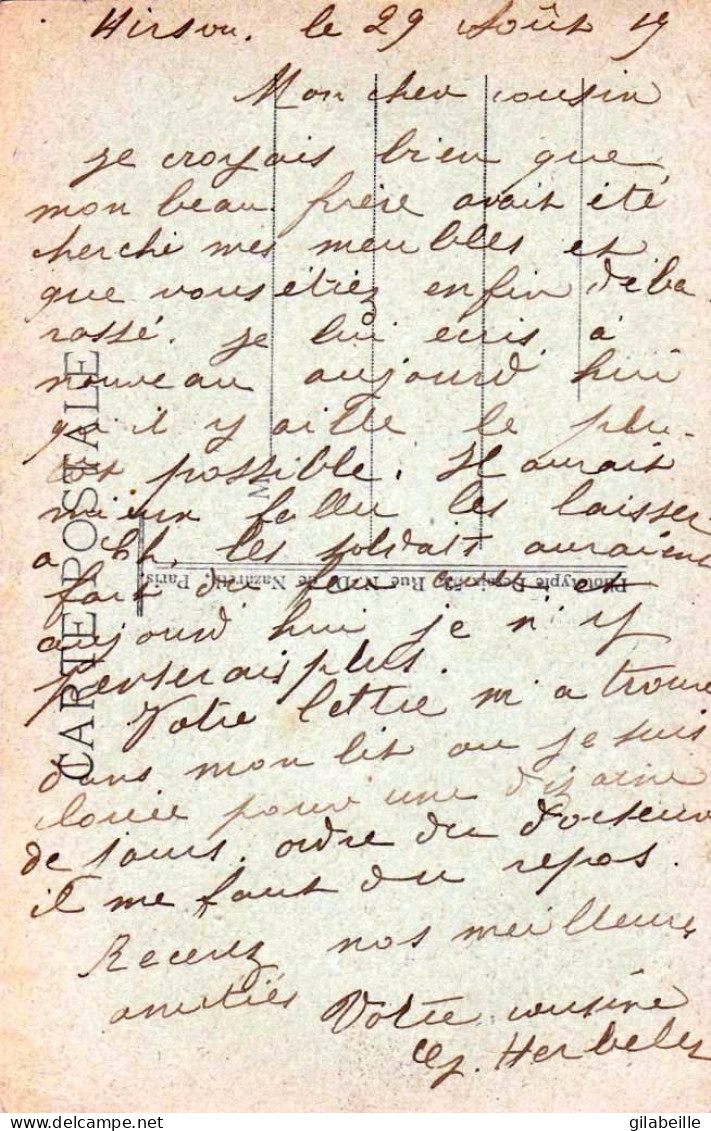 Hirson. le 29 Août 19
Mon cher cousin
je croyais bien que
mon beau frère avait été
cherché mes meubles et
que vous étiez enfin déba
rassé. Je lui écris à
nouveau aujourd'hui
qu'il y aille le plu-
tot possible. Il aurait
mieux fallu les laisser
a Ch. les soldats auraient
fait du feu avec et
aujourd'hui je n'y
penserais plus.
Votre lettre m'a trouvé
dans mon lit ou je suis
clouée pour une dizaine
de jours. ordre du docteur
il me faut du repos.
Recevez nos meilleures
amitiés
Votre cousine
Herbelet
CARTE POSTALE
Phototypie Rue N.-D. de Nazareth, Paris
delcampe.net
gilabeille